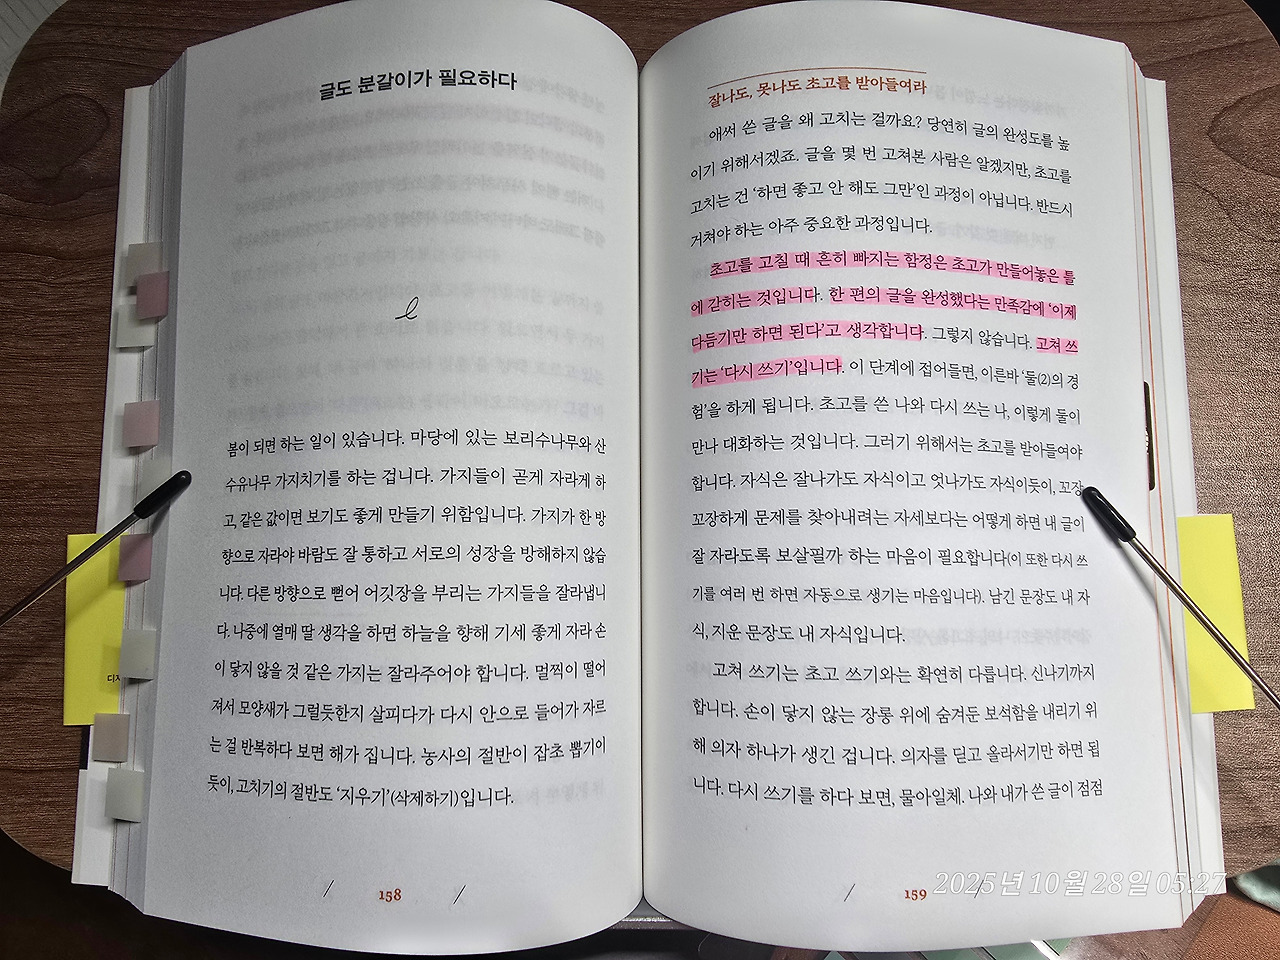 글도 분갈이가 필요하다
봄이 되면 하는 일이 있습니다. 마당에 있는 보리수나무와 산
수유나무 가지치기를 하는 겁니다. 가지들이 곧게 자라게 하
고, 같은 값이면 보기도 좋게 만들기 위함입니다. 가지가 한 방
향으로 자라야 바람도 잘 통하고 서로의 성장을 방해하지 않습
니다. 다른 방향으로 뻗어 어깃장을 부리는 가지들을 잘라냅니
다. 나중에 열매 딸 생각을 하면 하늘을 향해 기세 좋게 자라 손
이 닿지 않을 것 같은 가지는 잘라주어야 합니다. 멀찍이 떨어
져서 모양새가 그럴듯한지 살피다가 다시 안으로 들어가 자르
는 걸 반복하다 보면 해가 집니다. 농사의 절반이 잡초 뽑기이
듯이, 고치기의 절반도 ‘지우기’(삭제하기)입니다.
158
잘나도, 못나도 초고를 받아들여라
애써 쓴 글을 왜 고치는 걸까요? 당연히 글의 완성도를 높
이기 위해서겠죠. 글을 몇 번 고쳐본 사람은 알겠지만, 초고를
고치는 건 ‘하면 좋고 안 해도 그만’인 과정이 아닙니다. 반드시
거쳐야 하는 아주 중요한 과정입니다.
초고를 고칠 때 흔히 빠지는 함정은 초고가 만들어놓은 틀
에 갇히는 것입니다. 한 편의 글을 완성했다는 만족감에 ‘이제
다듬기만 하면 된다’고 생각합니다. 그렇지 않습니다. 고쳐 쓰
기는 ‘다시 쓰기’입니다. 이 단계에 접어들면, 이른바 ‘둘(2)의 경
험’을 하게 됩니다. 초고를 쓴 나와 다시 쓰는 나, 이렇게 둘이
만나 대화하는 것입니다. 그러기 위해서는 초고를 받아들여야
합니다. 자식은 잘나가도 자식이고 엇나가도 자식이듯이, 꼬장
꼬장하게 문제를 찾아내려는 자세보다는 어떻게 하면 내 글이
잘 자라도록 보살필까 하는 마음이 필요합니다(이 또한 다시 쓰
기를 여러 번 하면 자동으로 생기는 마음입니다). 남긴 문장도 내 자
식, 지운 문장도 내 자식입니다.
고쳐 쓰기는 초고 쓰기와는 확연히 다릅니다. 신나기까지
합니다. 손이 닿지 않는 장롱 위에 숨겨둔 보석함을 내리기 위
해 의자 하나가 생긴 겁니다. 의자를 딛고 올라서기만 하면 됩
니다. 다시 쓰기를 하다 보면, 물아일체. 나와 내가 쓴 글이 점점
159
2025년 10월 28일 05:27